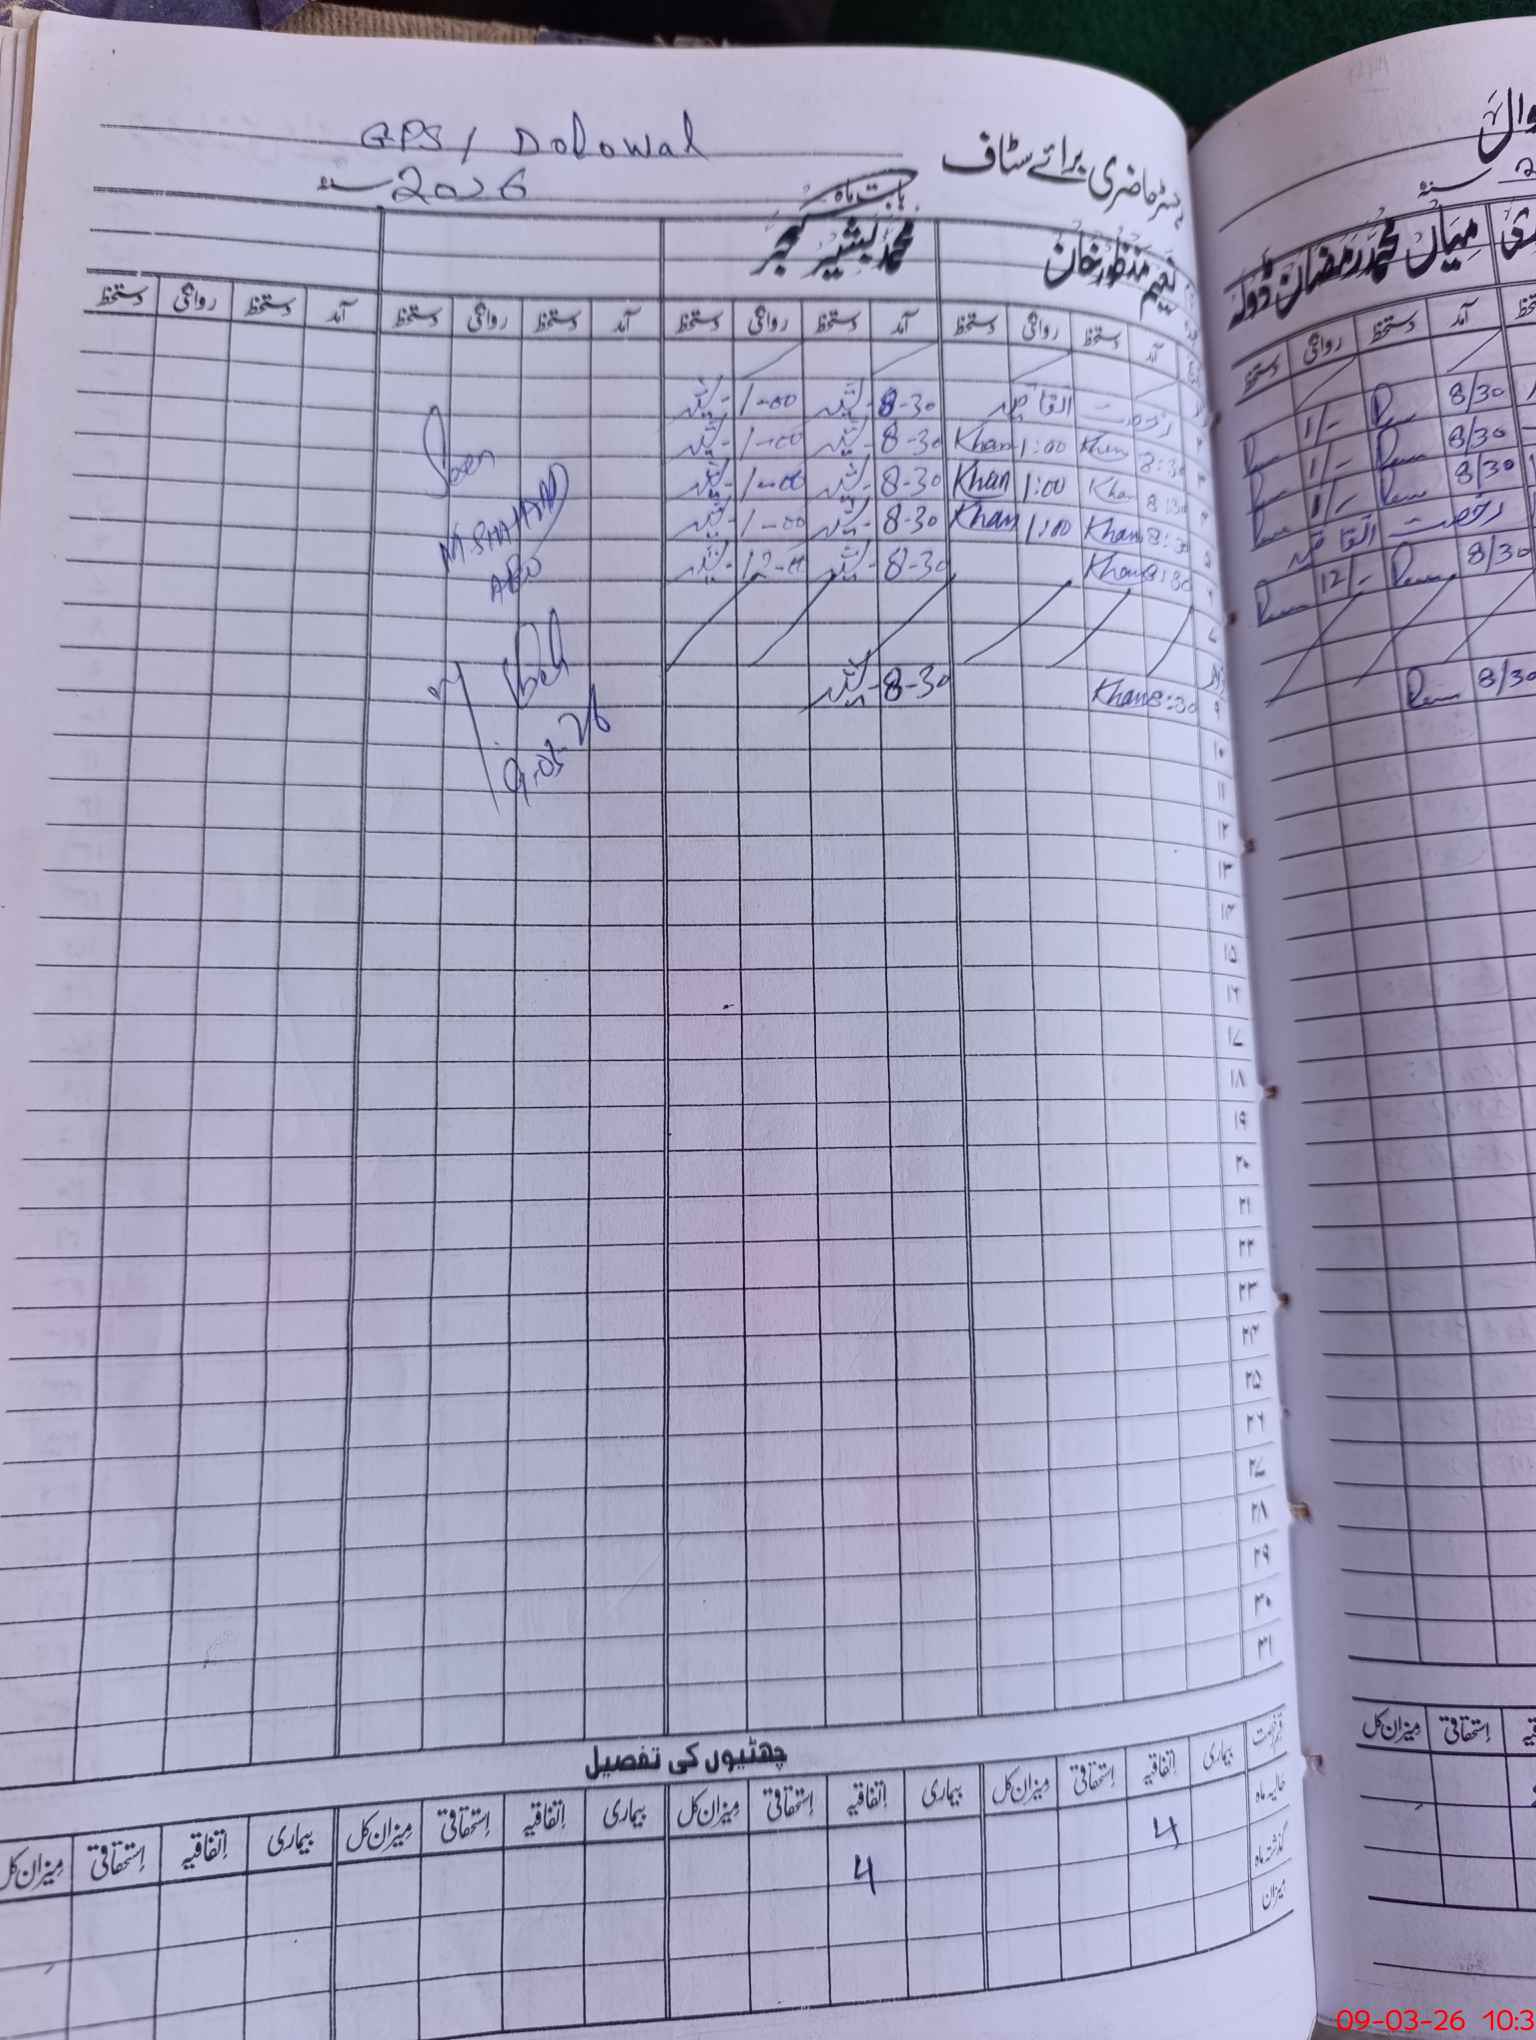 GPS/ Dolowal
رجسٹر حاضری برائے سٹاف
بابت ماہ
2026 سنہ
نعیم منظور خان
محمد بشیر گجر
آمد دستخط روانگی دستخط آمد دستخط روانگی دستخط آمد دستخط روانگی دستخط آمد دستخط روانگی دستخط
رخصت اتفاقیہ 8-30 1-00
۳ 8:30 Khan 1:00 Khan 8-30 1-00
۴ 8:30 Khan 1:00 Khan 8-30 1-00
۵ 8:30 Khan 1:00 Khan 8-30 1-00
۶ 8:30 Khan 8-30 12-00
۷
۹ 8:30 Khan 8-30
Seen
M SHAHZAD
AEO
9-03-26
۱۰
۱۱
۱۲
۱۳
۱۴
۱۵
۱۶
۱۷
۱۸
۱۹
۲۰
۲۱
۲۲
۲۳
۲۴
۲۵
۲۶
۲۷
۲۸
۲۹
۳۰
۳۱
چھٹیوں کی تفصیل
قسم رخصت بیماری اتفاقیہ استحقاقی میزان کل بیماری اتفاقیہ استحقاقی میزان کل بیماری اتفاقیہ استحقاقی میزان کل بیماری اتفاقیہ استحقاقی میزان کل
حالیہ ماہ
گذشتہ ماہ 4 4
میزان
وال
سنہ 2
میاں محمد رمضان ڈولہ
آمد دستخط روانگی دستخط
8/30 1/-
8/30 1/-
8/30 1/-
رخصت اتفاقیہ
8/30 12/-
8/30
استحقاقی میزان کل
09-03-26 10:3